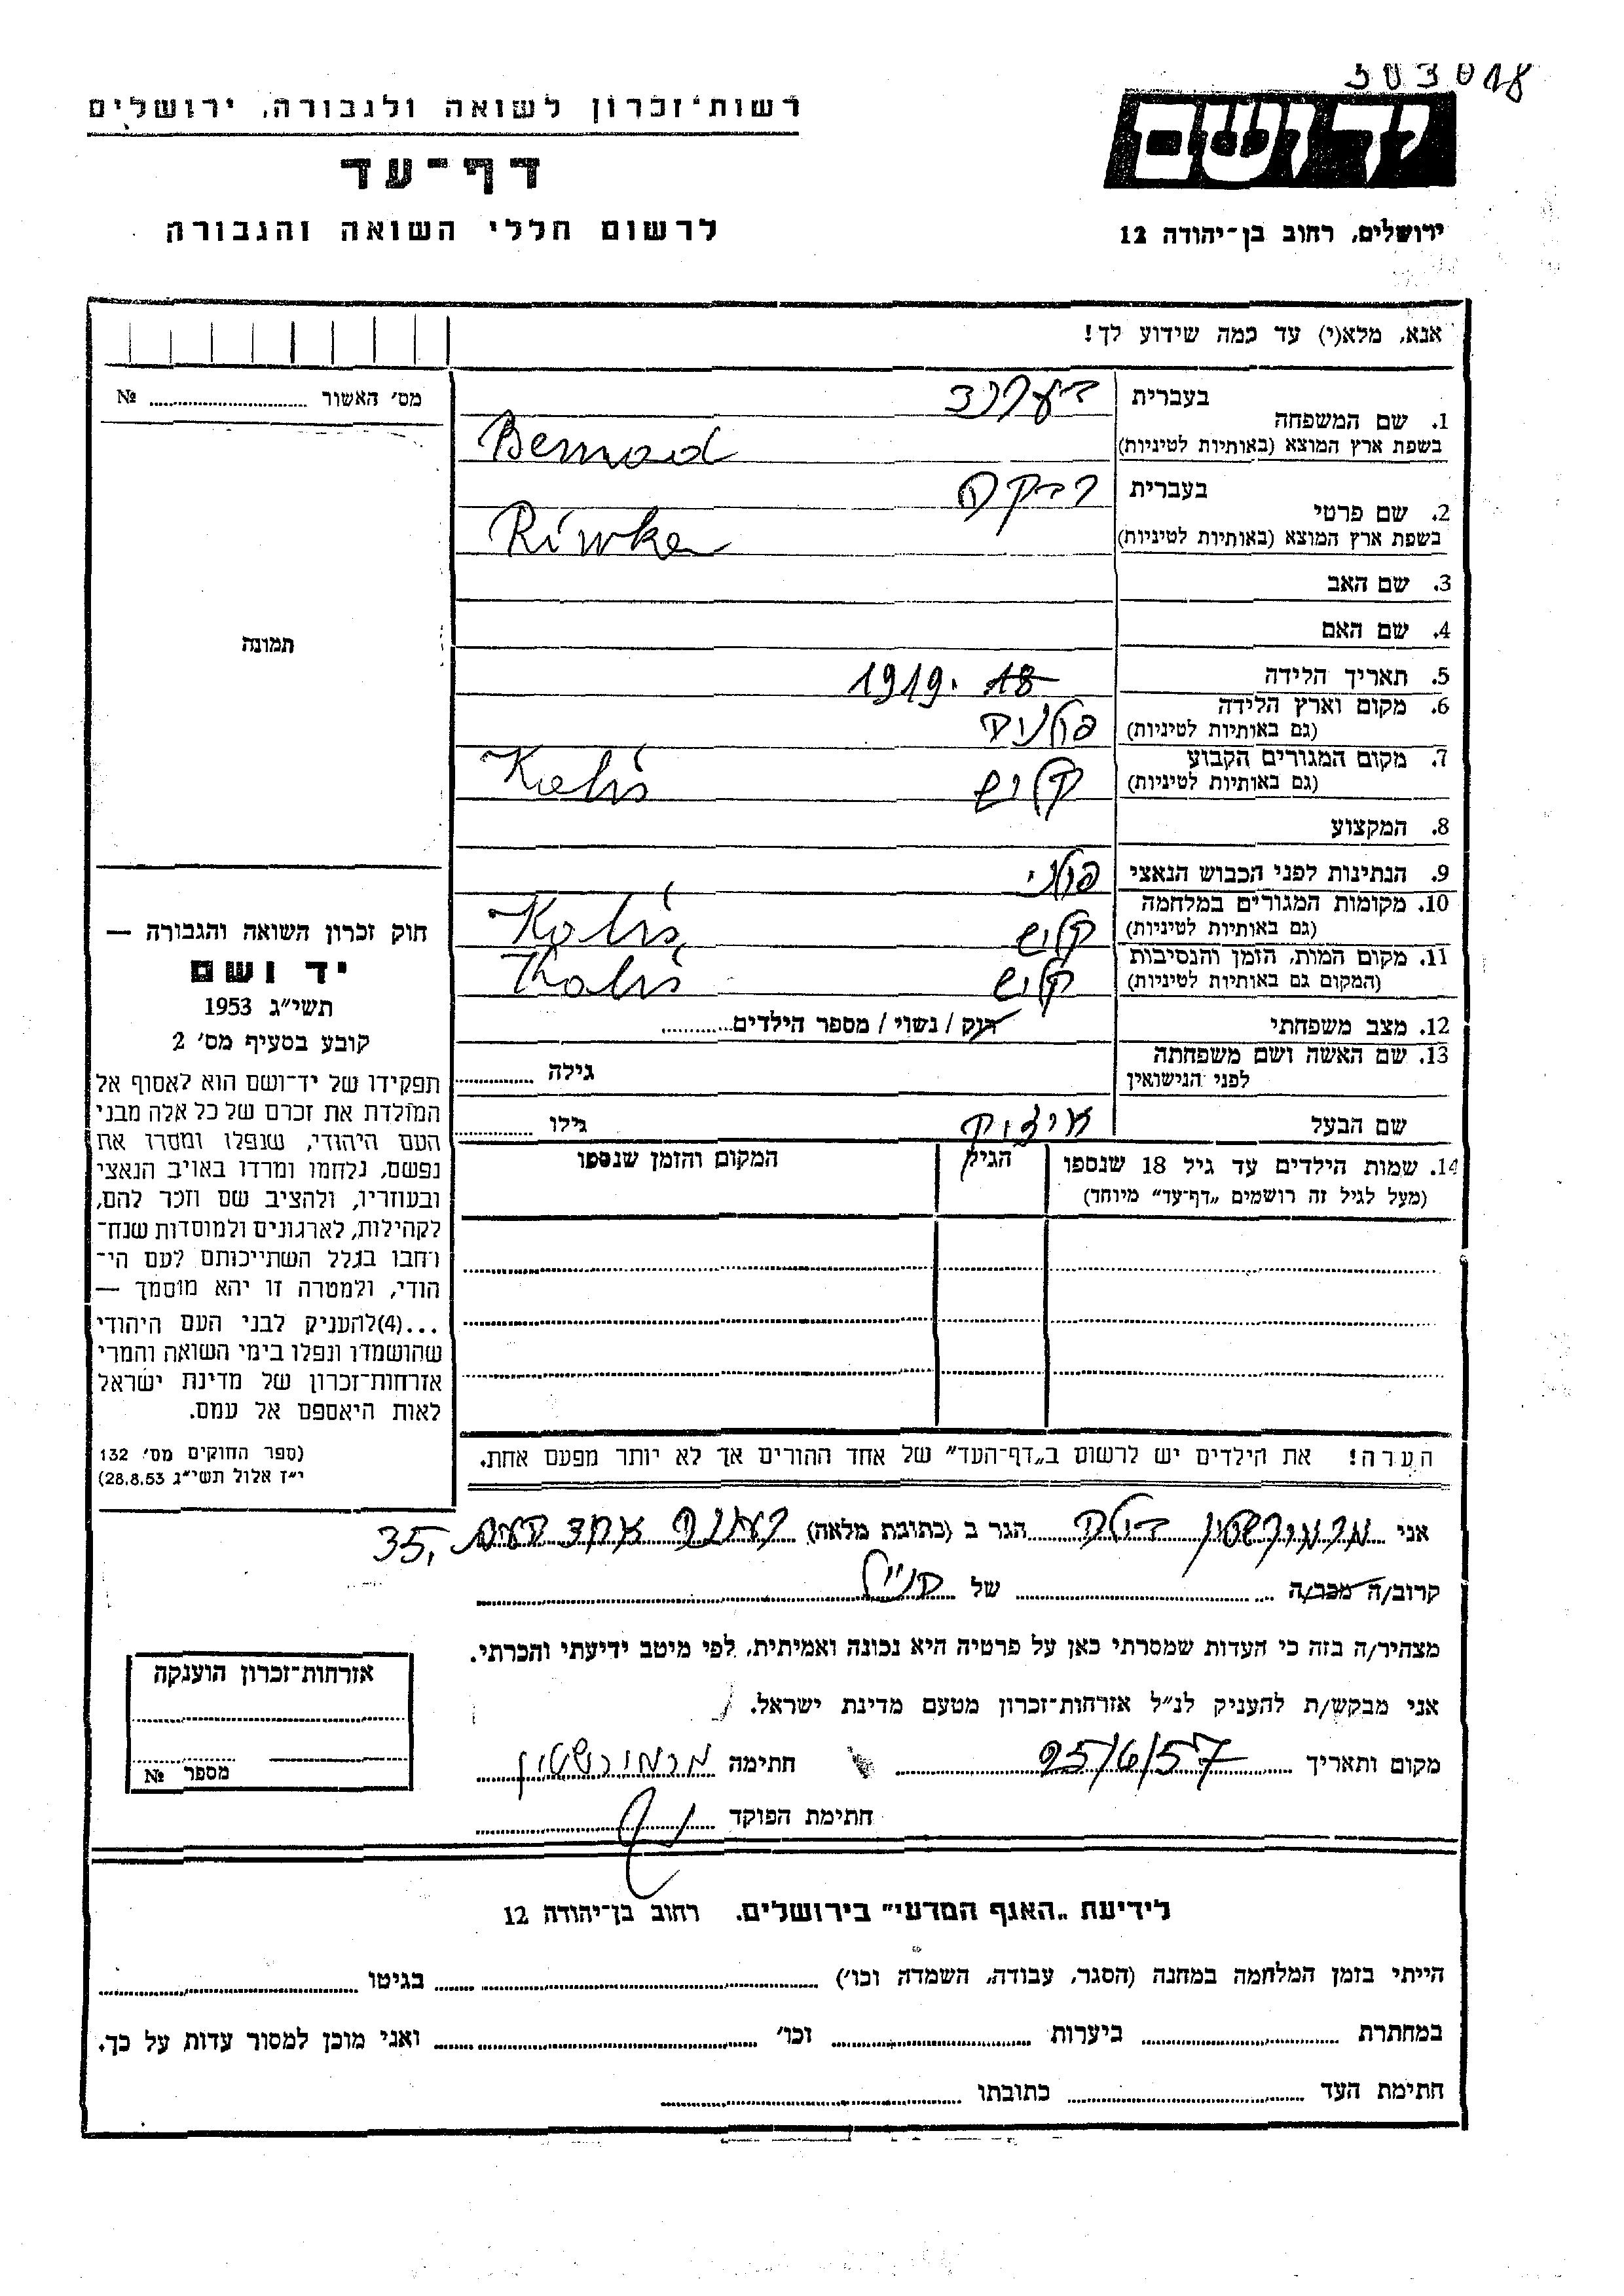 303018
רשות־זכרון לשואה ולגבורה, ירושלים
דף־עד
לרשום חללי השואה והגבורה
ידושם
ירושלים, רחוב בן־יהודה 12
אנא, מלא(י) עד כמה שידוע לך!
מס׳ האשור № ..........
תמונה
1. שם המשפחה
בעברית
בשפת ארץ המוצא (באותיות לטיניות)
2. שם פרטי
בעברית רבקה
בשפת ארץ המוצא (באותיות לטיניות) Riwka
3. שם האב
4. שם האם
5. תאריך הלידה 18 1919.
6. מקום וארץ הלידה
(גם באותיות לטיניות) פולניה
7. מקום המגורים הקבוע
(גם באותיות לטיניות) קליש Kalis
8. המקצוע
9. הנתינות לפני הכבוש הנאצי פולני
10. מקומות המגורים במלחמה
(גם באותיות לטיניות) קליש Kalis
11. מקום המות, הזמן והנסיבות
(המקום גם באותיות לטיניות) קליש Kalis
12. מצב משפחתי רוק / נשוי / מספר הילדים..........
13. שם האשה ושם משפחתה
לפני הנישואין גילה ..........
שם הבעל גילו ..........
14. שמות הילדים עד גיל 18 שנספו הגיל המקום והזמן שנספו
(מעל לגיל זה רושמים „דף־עד״ מיוחד)
הערה! את הילדים יש לרשום ב„דף־העד״ של אחד ההורים אך לא יותר מפעם אחת.
חוק זכרון השואה והגבורה —
יד ושם
תשי״ג 1953
קובע בסעיף מס׳ 2
תפקידו של יד־ושם הוא לאסוף אל
המולדת את זכרם של כל אלה מבני
העם היהודי, שנפלו ומסרו את
נפשם, נלחמו ומרדו באויב הנאצי
ובעוזריו, ולהציב שם וזכר להם,
לקהילות, לארגונים ולמוסדות שנח־
רחבו בגלל השתייכותם לעם הי־
הודי, ולמטרה זו יהא מוסמך —
...(4)להעניק לבני העם היהודי
שהושמדו ונפלו בימי השואה והמרי
אזרחות־זכרון של מדינת ישראל
לאות היאספם אל עמם.
(ספר החוקים מס׳ 132
י״ז אלול תשי״ג 28.8.53)
אני הגר ב (כתובת מלאה) 35,
קרוב/ה מכר/ה .......... של
מצהיר/ה בזה כי העדות שמסרתי כאן על פרטיה היא נכונה ואמיתית, לפי מיטב ידיעתי והכרתי.
אני מבקש/ת להעניק לנ״ל אזרחות־זכרון מטעם מדינת ישראל.
מקום ותאריך 25/6/57 חתימה
חתימת הפוקד
אזרחות־זכרון הוענקה
מספר №
לידיעת „האגף המדעי״ בירושלים. רחוב בן־יהודה 12
הייתי בזמן המלחמה במחנה (הסגר, עבודה, השמדה וכו׳) .......... בגיטו ..........
במחתרת .......... ביערות .......... וכו׳ .......... ואני מוכן למסור עדות על כך.
חתימת העד .......... כתובתו ..........